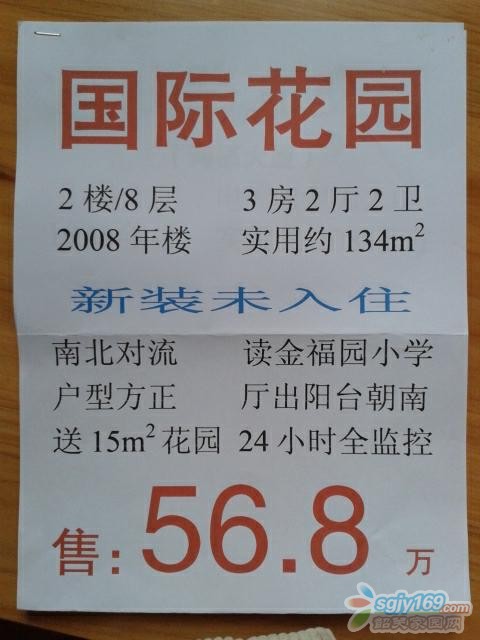 国际花园
2楼/8层 3房2厅2卫
2008年楼 实用约134m²
新装未入住
南北对流 读金福园小学
户型方正 厅出阳台朝南
送15m²花园 24小时全监控
售:56.8万
sgjy169.com
韶关家园网